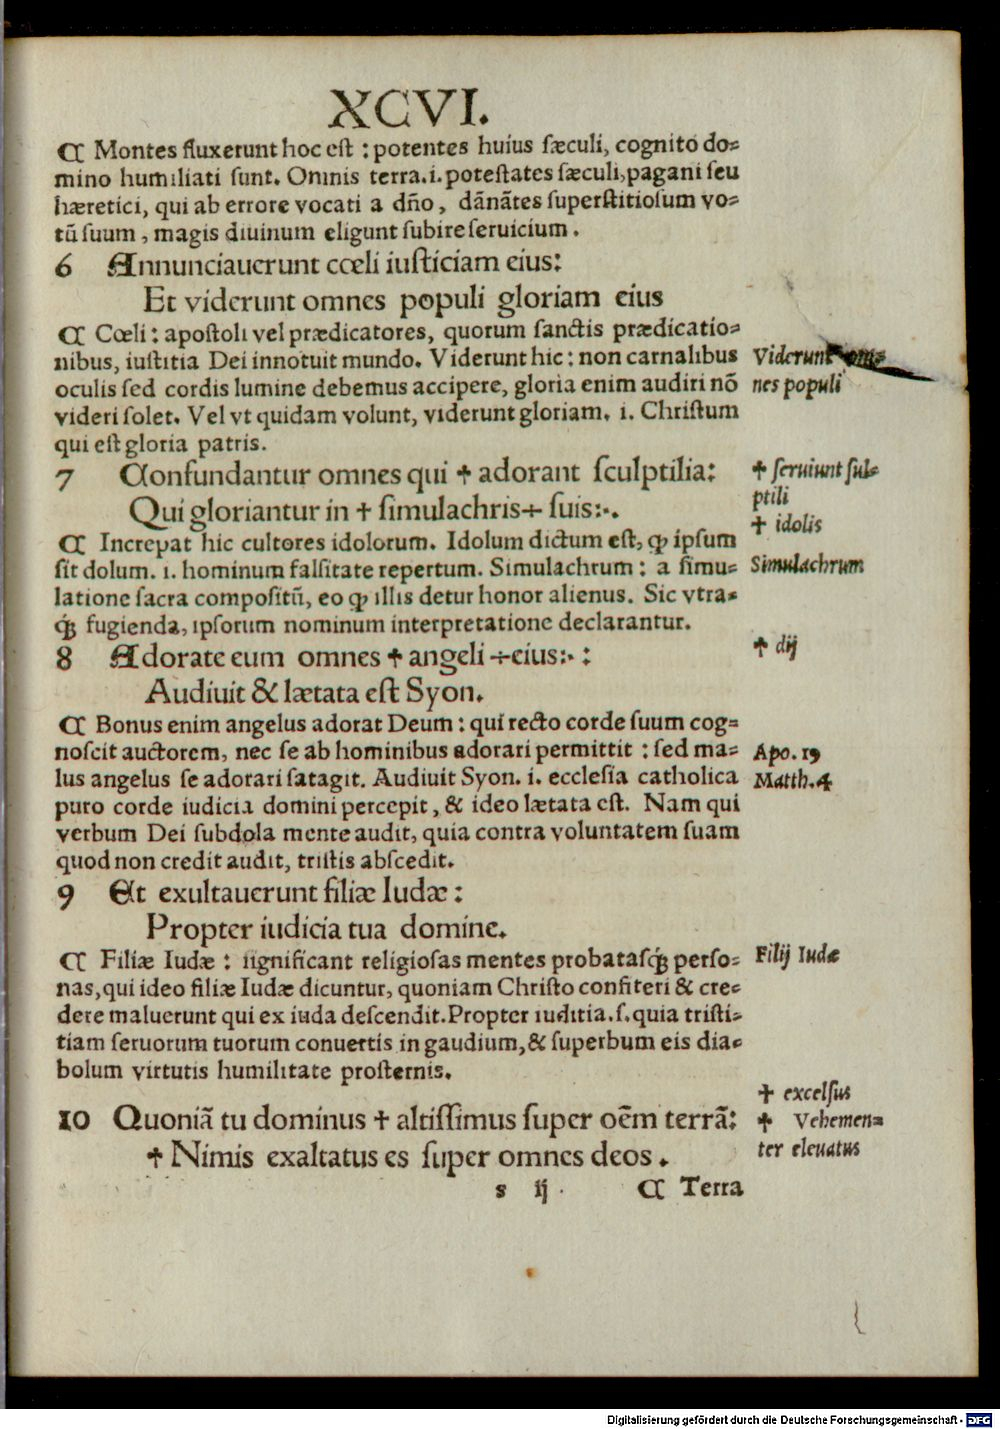 XCVI.
¶ Montes fluxerunt hoc est : potentes huius sæculi, cognito do-
mino humiliati sunt. Omnis terra.i.potestates sæculi,pagani seu
hæretici, qui ab errore vocati a dño, dãnãtes superstitiosum vo-
tũ suum, magis diuinum eligunt subire seruicium.
6 Annunciauerunt cœli iusticiam eius:
Et viderunt omnes populi gloriam eius
¶ Cœli : apostoli vel prædicatores, quorum sanctis prædicatio-
nibus, iustitia Dei innotuit mundo. Viderunt hic : non carnalibus
oculis sed cordis lumine debemus accipere, gloria enim audiri nõ
videri solet. Vel vt quidam volunt, viderunt gloriam. i. Christum
qui est gloria patris.
Viderunt om-
nes populi
7 Confundantur omnes qui ✝ adorant sculptilia:
Qui gloriantur in ✝ simulachris÷ suis:·.
✝ seruiunt sul-
ptili
✝ idolis
¶ Increpat hic cultores idolorum. Idolum dictum est, ꝙ ipsum
sit dolum. i. hominum falsitate repertum. Simulachrum : a simu-
latione sacra compositũ, eo ꝙ illis detur honor alienus. Sic vtra-
ꝙ́ fugienda, ipsorum nominum interpretatione declarantur.
Simulachrum
8 Adorate eum omnes ✝ angeli ÷eius:· :
Audiuit & lætata est Syon.
✝ dij
¶ Bonus enim angelus adorat Deum : qui recto corde suum cog-
noscit auctorem, nec se ab hominibus adorari permittit : sed ma-
lus angelus se adorari satagit. Audiuit Syon. i. ecclesia catholica
puro corde iudicia domini percepit, & ideo lætata est. Nam qui
verbum Dei subdola mente audit, quia contra voluntatem suam
quod non credit audit, tristis abscedit.
Apo. 19
Matth. 4
9 Et exultauerunt filiæ Iudæ :
Propter iudicia tua domine.
¶ Filiæ Iudæ : significant religiosas mentes probatasꝙ́ perso-
nas,qui ideo filiæ Iudæ dicuntur, quoniam Christo confiteri & cre-
dere maluerunt qui ex iuda descendit.Propter iuditia.s.quia tristi-
tiam seruorum tuorum conuertis in gaudium,& superbum eis dia-
bolum virtutis humilitate prosternis.
Filij Iudæ
10 Quoniã tu dominus ✝ altissimus super oẽm terrã:
✝ Nimis exaltatus es super omnes deos.
✝ excelsus
✝ Vehemen-
ter eleuatus
s ij
¶ Terra
Digitalisierung gefördert durch die Deutsche Forschungsgemeinschaft - DFG